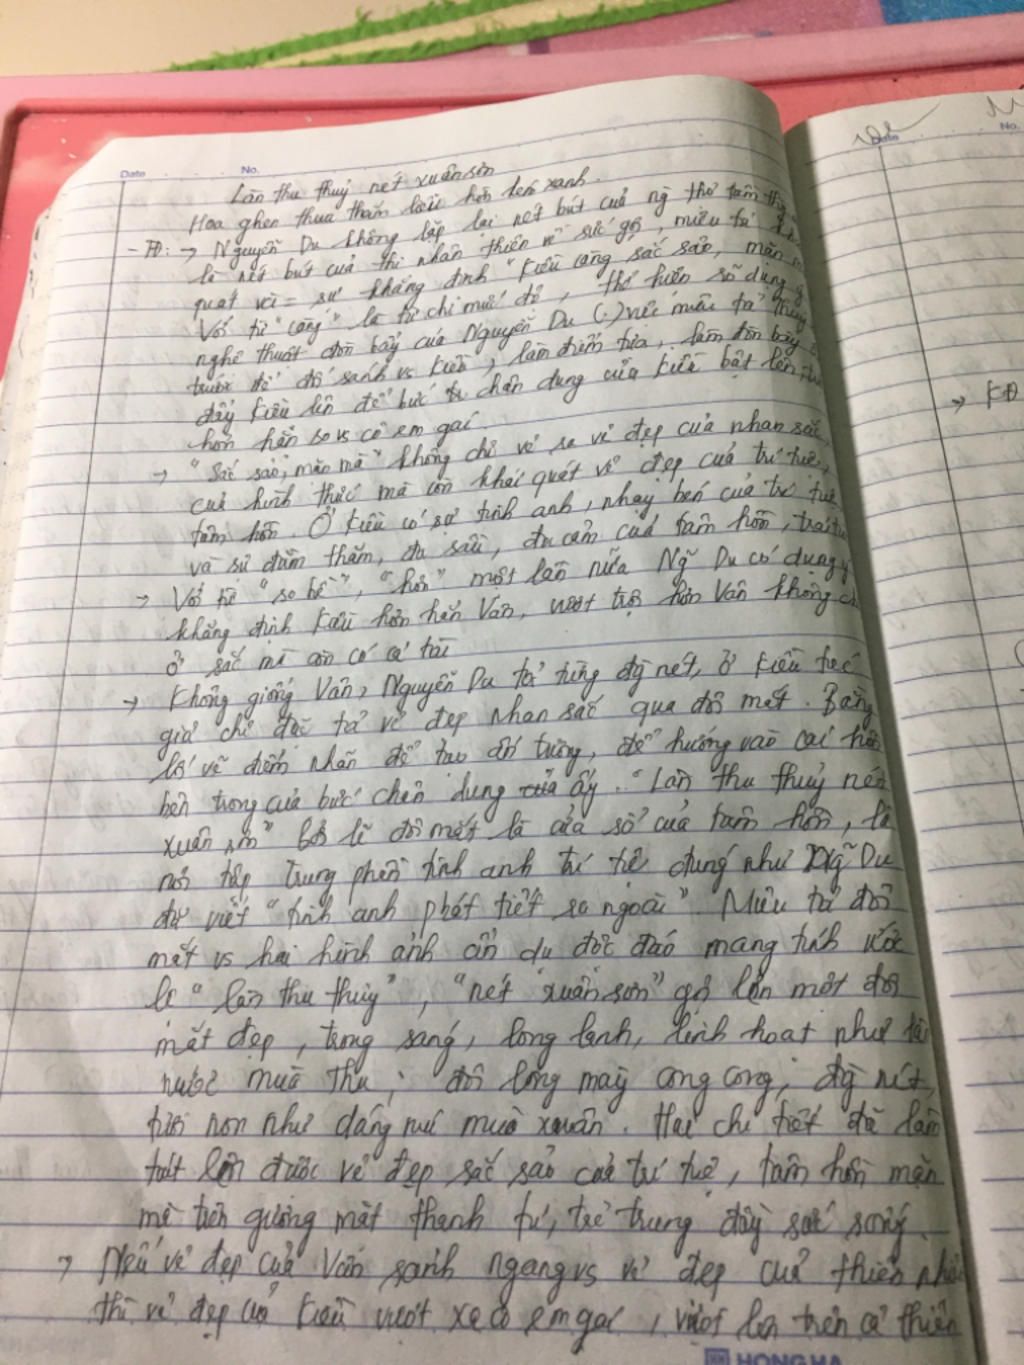 Date No.
Làn thu thuỷ nét xuân sơn
Hoa ghen thua thắm liễu hờn kém xanh.
- PĐ: → Nguyễn Du không lặp lại nét bút của ng thơ tâm
là nét bút của thi nhân thiên về sức gợi, miêu tả
quát về = sự khẳng định "Kiều càng sắc sảo, mặn
Với từ "càng" là từ chỉ mức độ, thể hiện sử dụng
nghệ thuật đòn bẩy của Nguyễn Du (.) việc miêu tả
trước để đối sánh vs Kiều, làm điểm tựa, làm đòn bẩy
đẩy Kiều lên để bức chân dung của Kiều bật lên,
hơn hẳn so vs cô em gái.
→ "Sắc sảo, mặn mà" không chỉ vẽ ra vẻ đẹp của nhan sắc,
của hình thức mà còn khái quát vẻ đẹp của trí tuệ,
tâm hồn. Ở Kiều có sự tinh anh, nhạy bén của trí tuệ
và sự đằm thắm, đa sầu, đa cảm của tâm hồn, trái
→ Với từ "so bề", "hơn" một lần nữa Ng~ Du có dụng ý
khẳng định Kiều hơn hẳn Vân, vượt trội hơn Vân không
ở sắc mà còn có cả tài
→ Không giống Vân, Nguyễn Du tả từng đg nét, ở Kiều tác
giả chỉ đặc tả vẻ đẹp nhan sắc qua đôi mắt. Bằng
lối vẽ điểm nhãn để tạo ấn tượng, để hướng vào cái hồn
bên trong của bức chân dung ấy. "Làn thu thuỷ nét
xuân sơn" bởi lẽ đôi mắt là cửa sổ của tâm hồn, là
nơi tập trung phần tinh anh trí tuệ đúng như Ng~ Du
đã viết "tinh anh phát tiết ra ngoài". Miêu tả đôi
mắt vs hai hình ảnh ẩn dụ độc đáo mang tính ước
lệ "làn thu thủy", "nét xuân sơn" gợi lên một đôi
mắt đẹp, trong sáng, long lanh, linh hoạt như làn
nước mùa thu; đôi lông mày cong cong, đg nét
tươi non như dáng núi mùa xuân. Hai chi tiết đã làm
toát lên được vẻ đẹp sắc sảo của trí tuệ, tâm hồn mặn
mà trên gương mặt thanh tú, trẻ trung đầy sức sống.
→ Nếu vẻ đẹp của Vân sánh ngang vs vẻ đẹp của thiên nhiên
thì vẻ đẹp của Kiều vượt xa cô em gái, vượt lên trên cả thiên
HONG HA
Date No.
→ KĐ